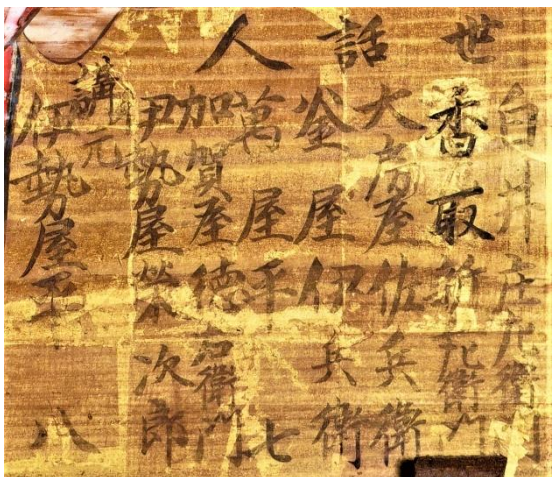 世話人
白井庄左衛門
香取新左衛門
大房屋佐兵衛
釜屋伊兵衛
萬屋平七
加賀屋徳右衛門
伊勢屋栄次郎
講元
伊勢屋平八